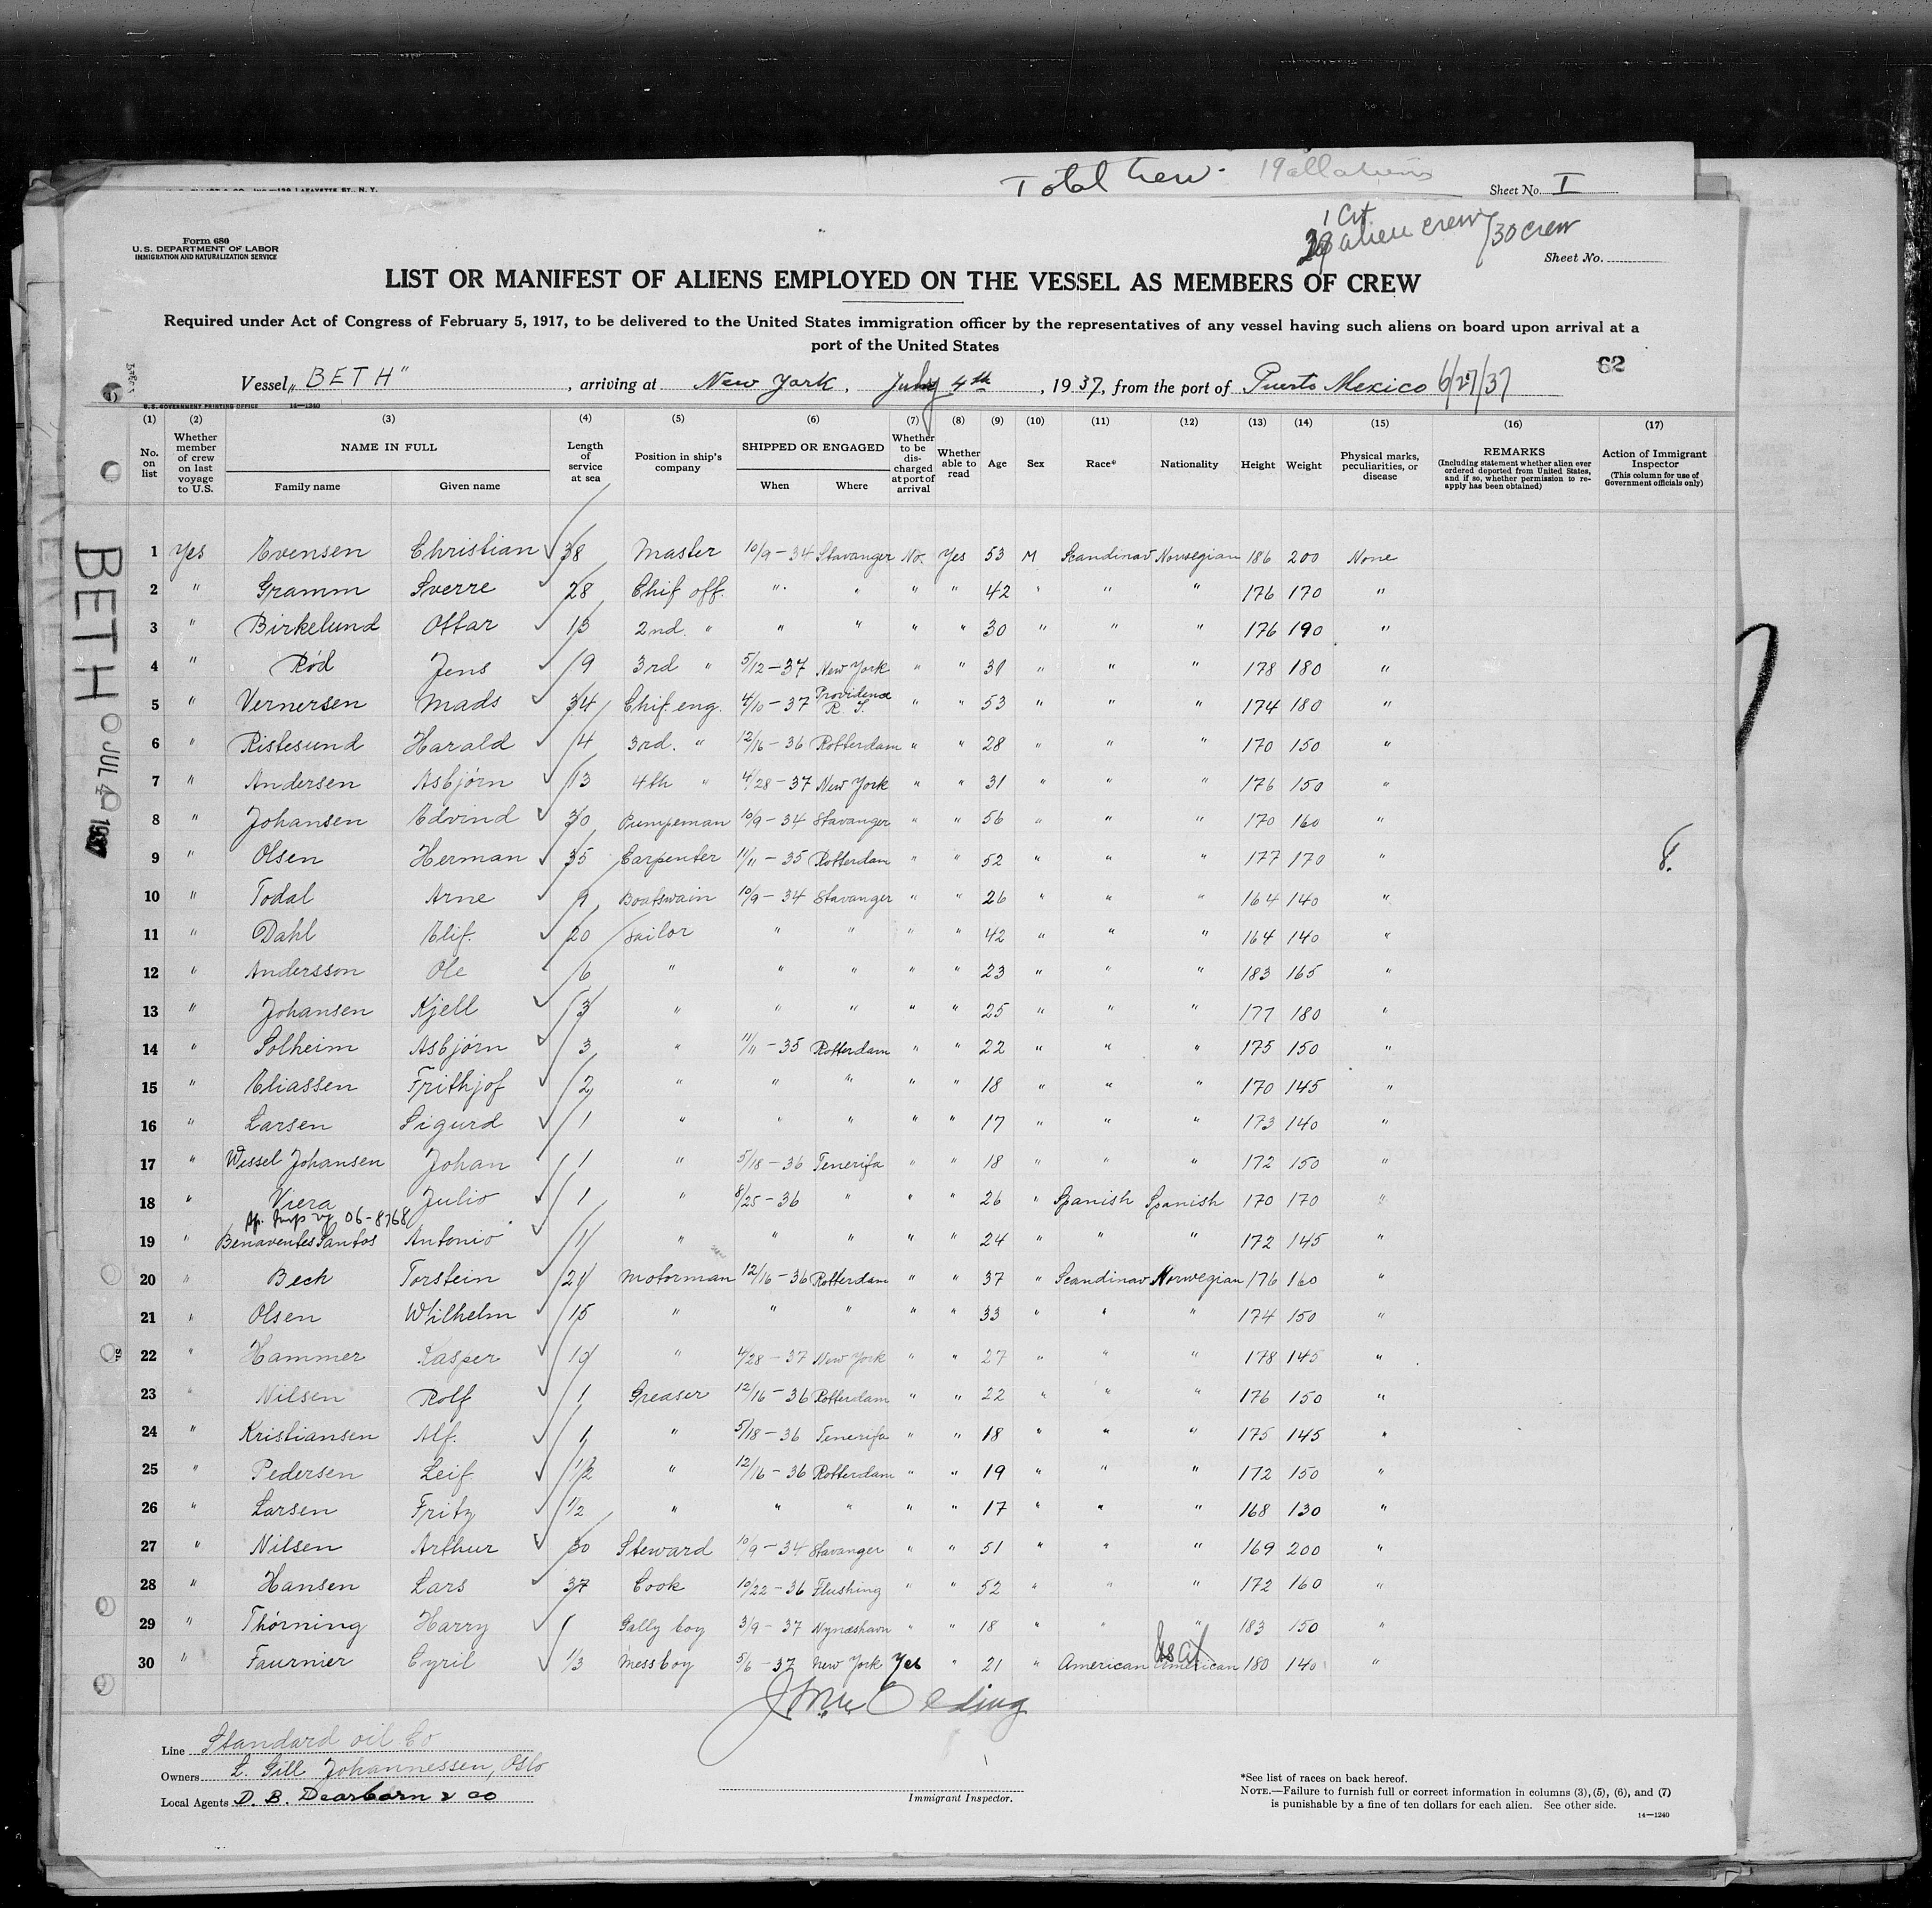 Total Crew - 19 all aliens
Sheet No. I
1 Cit
29 alien crew / 30 crew
Form 680
U. S. DEPARTMENT OF LABOR
IMMIGRATION AND NATURALIZATION SERVICE
Sheet No.
LIST OR MANIFEST OF ALIENS EMPLOYED ON THE VESSEL AS MEMBERS OF CREW
Required under Act of Congress of February 5, 1917, to be delivered to the United States immigration officer by the representatives of any vessel having such aliens on board upon arrival at a
port of the United States
62
Vessel „BETH", arriving at New York. July 4th, 1937, from the port of Puerto Mexico 6/27/37
U. S. GOVERNMENT PRINTING OFFICE 14—1240
(1) (2) (3) (4) (5) (6) (7) (8) (9) (10) (11) (12) (13) (14) (15) (16) (17)
No. on list
Whether member of crew on last voyage to U.S.
NAME IN FULL
Family name Given name
Length of service at sea
Position in ship's company
SHIPPED OR ENGAGED
When Where
Whether to be discharged at port of arrival
Whether able to read
Age
Sex
Race*
Nationality
Height
Weight
Physical marks, peculiarities, or disease
REMARKS
(Including statement whether alien ever ordered deported from United States, and if so, whether permission to reapply has been obtained)
Action of Immigrant Inspector
(This column for use of Government officials only)
BETH JUL 4 1937
1 Yes Evensen Christian 38 Master 10/9-34 Stavanger No. Yes 53 M Scandinav Norwegian 186 200 None
2 " Gramm Sverre 28 Chif off. " " " " 42 " " " 176 170 "
3 " Birkelund Ottar 13 2nd. " " " " " 30 " " " 176 190 "
4 " Rød Jens 9 3rd " 5/12-37 New York " " 31 " " " 178 180 "
5 " Vernersen Mads 34 Chif. eng. 4/10-37 Providence R. I. " " 53 " " " 174 180 "
6 " Ristesund Harald 14 3rd. " 12/16-36 Rotterdam " " 28 " " " 170 150 "
7 " Andersen Asbjørn 13 4th " 4/28-37 New York " " 31 " " " 176 150 "
8 " Johansen Edvind 30 Pumpeman 10/9-34 Stavanger " " 56 " " " 170 160 "
9 " Olsen Herman 35 Carpenter 11/11-35 Rotterdam " " 52 " " " 177 170 "
10 " Todal Arne 9 Boatswain 10/9-34 Stavanger " " 26 " " " 164 140 "
11 " Dahl Elif. 20 Sailor " " " " 42 " " " 164 140 "
12 " Andersson Ole 6 " " " " " 23 " " " 183 165 "
13 " Johansen Kjell 3 " " " " " 25 " " " 177 180 "
14 " Solheim Asbjørn 3 " 11/11-35 Rotterdam " " 22 " " " 175 150 "
15 " Eliassen Frithjof 2 " " " " " 18 " " " 170 145 "
16 " Larsen Sigurd 1 " " " " " 17 " " " 173 140 "
17 " Wessel Johansen Johan 1 " 5/18-36 Tenerifa " " 18 " " " 172 150 "
18 " Viera Julio 1 " 8/25-36 " " " 26 " Spanish Spanish 170 170 "
06-8768
19 " Benaventes Santos Antonio 1 " " " " " 24 " " " 172 145 "
20 " Bech Torstein 21 Motorman 12/16-36 Rotterdam " " 37 " Scandinav Norwegian 176 160 "
21 " Olsen Wilhelm 15 " " " " " 33 " " " 174 150 "
22 " Hammer Kasper 10 " 4/28-37 New York " " 27 " " " 178 145 "
23 " Nilsen Rolf 1 Greaser 12/16-36 Rotterdam " " 22 " " " 176 150 "
24 " Kristiansen Alf. 1 " 5/18-36 Tenerifa " " 18 " " " 175 145 "
25 " Pedersen Leif 1/2 " 12/16-36 Rotterdam " " 19 " " " 172 150 "
26 " Larsen Fritz 1/2 " " " " " 17 " " " 168 130 "
27 " Nilsen Arthur 30 Steward 10/9-34 Stavanger " " 51 " " " 169 200 "
28 " Hansen Lars 37 Cook 10/22-36 Flushing " " 52 " " " 172 160 "
29 " Thørning Harry 1 Gally boy 3/9-37 Nynæshavn " " 18 " " " 183 150 "
30 " Faurnier Cyril 1/3 Messboy 5/6-37 New York Yes " 21 " American American 180 140 "
Line Standard oil Co
Owners L. Gill Johannessen, Oslo
Local Agents D. B. Dearborn & co
Immigrant Inspector.
*See list of races on back hereof.
NOTE.—Failure to furnish full or correct information in columns (3), (5), (6), and (7)
is punishable by a fine of ten dollars for each alien. See other side.
14—1240